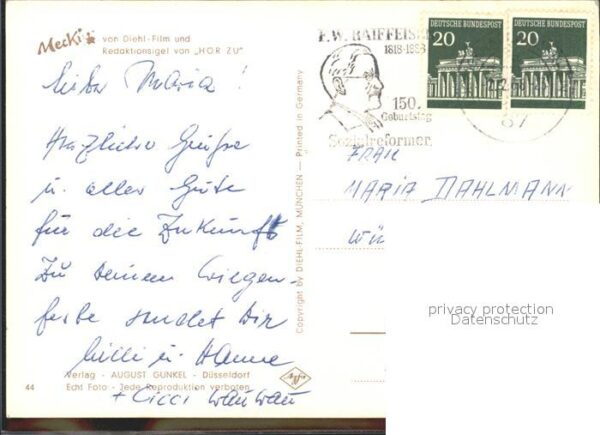 Mecki von Diehl-Film und
Redaktionsigel von „HÖR ZU"
Liebe Maria !
Herzliche Grüße
u. alles Gute
für die Zukunft
Zu Deinem Wiegen-
feste sendet Dir
Willi u. Hanne
+ Cicci wau wau
Verlag - AUGUST GUNKEL - Düsseldorf
44 Echt Foto - Jede Reproduktion verboten
Copyright by DIEHL-FILM, MÜNCHEN — Printed in Germany
F.W. RAIFFEISEN
1818-1888
150.
Geburtstag
Sozialreformer
DEUTSCHE BUNDESPOST
20
DEUTSCHE BUNDESPOST
20
FRAU
MARIA DAHLMANN
WÜ
privacy protection
Datenschutz